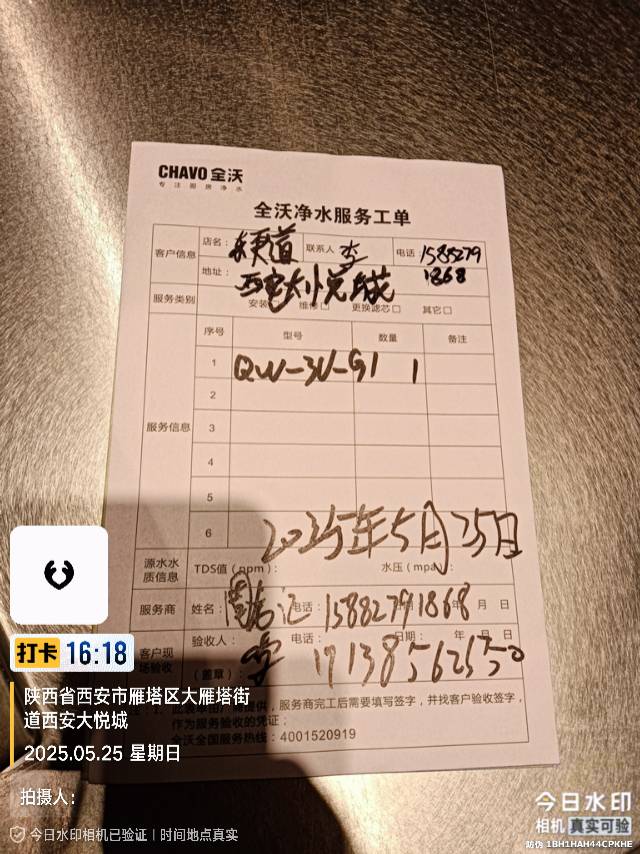 CHAVO 全沃
专 注 厨 房 净 水
全沃净水服务工单
客户信息 店名： 联系人 李 电话： 1585279
1868
地址： 西安大悦城
服务类别 安装 维修□ 更换滤芯□ 其它□
序号 型号 数量 备注
1 QW-3U-G1 1
2
服务信息 3
4
5
6
2025年5月25日
源水水质信息 TDS值（ppm）： 水压（mpa）：
服务商 姓名： 电话： 15882791868 年 月 日
客户现场验收 验收人： 电话： 日期： 年 月 日
（盖章）： 李 17138562550
提供，服务商完工后需要填写签字，并找客户验收签字，
作为服务验收的凭证；
全沃全国服务热线：4001520919
打卡 16:18
陕西省西安市雁塔区大雁塔街
道西安大悦城
2025.05.25 星期日
拍摄人：
今日水印相机已验证 | 时间地点真实
今日水印
相机 真实可验
防伪 1BH1HAH44CPKHE